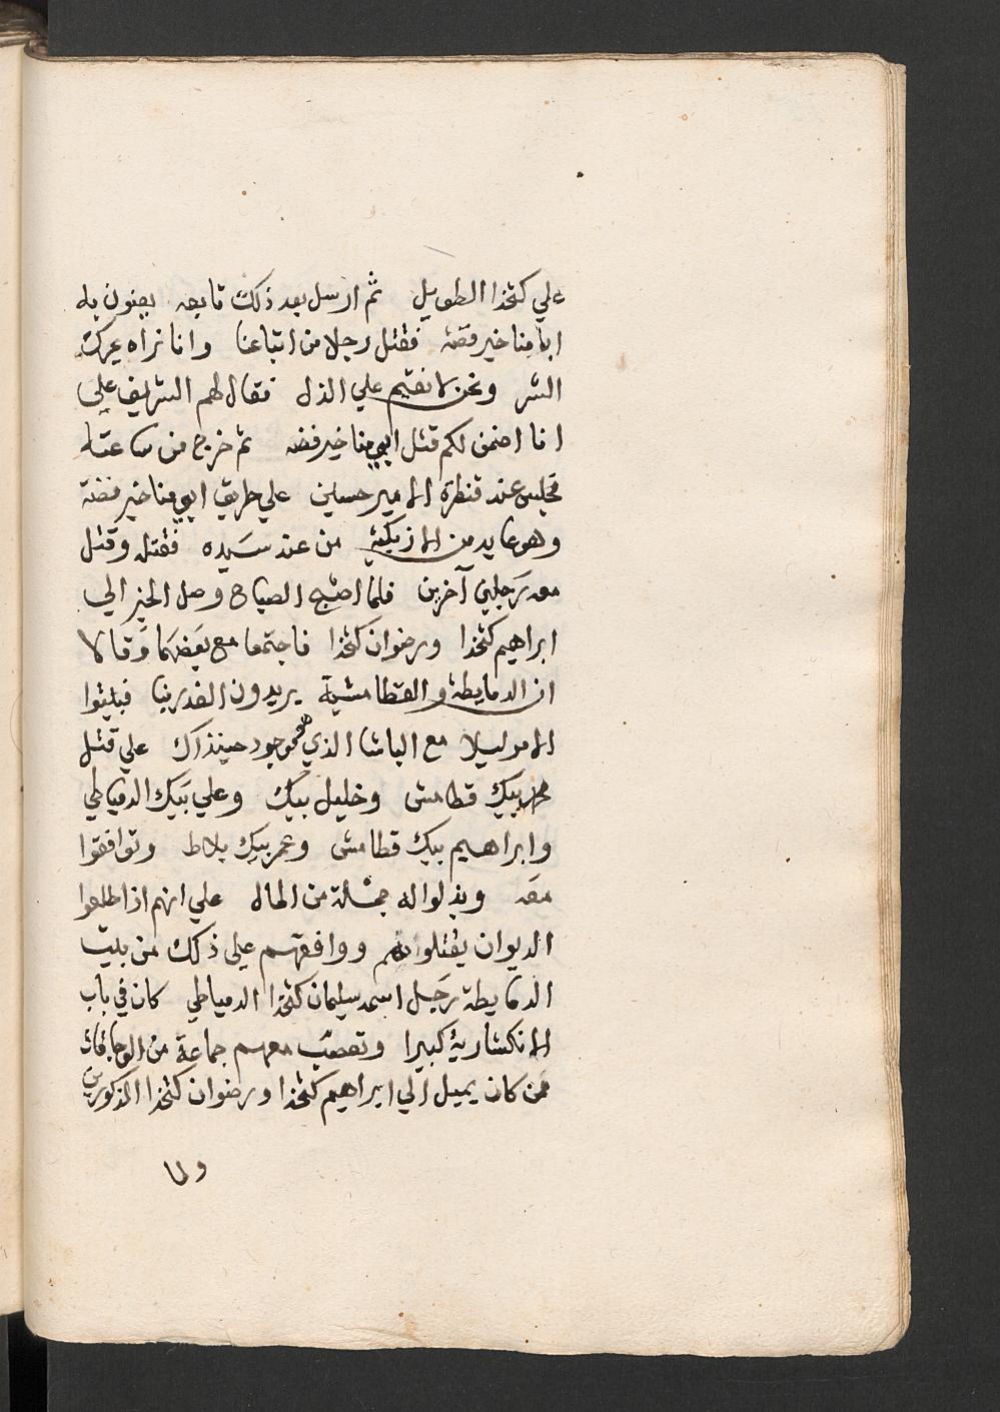 علي كتخدا الطويل ثم ارسل بعد ذلك تابعه يعنون به
ابا مناخير فضه فقتل رجلا من اتباعنا وانا نراه يحرك
الشر ونحن لا نقيم علي الذل فقال لهم الشريف علي
انا اضمن لكم قتل ابي مناخير فضه ثم خرج من ساعته
فجلس عند قنطرة الامير حسين علي طريق ابي مناخير فضة
وهو عايد من الازبكية من عند سيده فقتله وقتل
معه رجلين آخرين فلما اصبح الصباح وصل الخبر الي
ابراهيم كتخدا ورضوان كتخدا فاجتمعا مع بعضهما وقالا
ان الدمايطة والقطامشية يريدون الغدر بنا فبيتوا
الامر ليلا مع الباشا الذي هو موجود حينذاك علي قتل
محمد بيك قطامش وخليل بيك وعلي بيك الدمياطي
وابراهيم بيك قطامش وعمر بيك بلاط وتوافقوا
معه وبذلوا له جملة من المال علي انهم اذا طلعوا
الديوان يقتلونهم ووافقهم علي ذلك من بيت
الدمايطة رجل اسمه سليمان كتخدا الدمياطي كان في باب
الانكشارية كبيرا وتعصب معهم جماعة من الوجاقات
ممن كان يميل الي ابراهيم كتخدا ورضوان كتخدا المذكورين
ولما